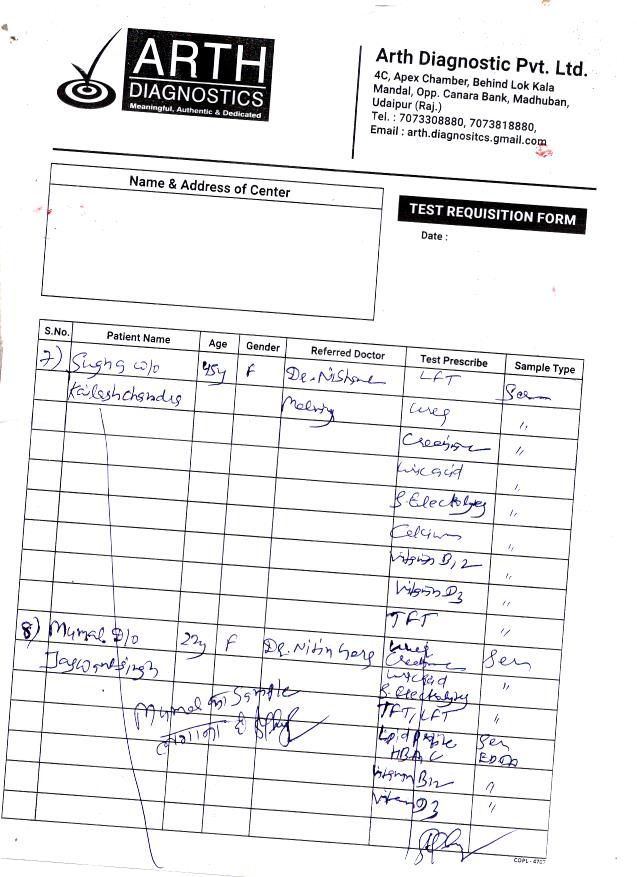 ARTH
DIAGNOSTICS
Meaningful, Authentic & Dedicated
Arth Diagnostic Pvt. Ltd.
4C, Apex Chamber, Behind Lok Kala
Mandal, Opp. Canara Bank, Madhuban,
Udaipur (Raj.)
Tel. : 7073308880, 7073818880,
Email : arth.diagnositcs.gmail.com
Name & Address of Center
TEST REQUISITION FORM
Date :
S.No. Patient Name Age Gender Referred Doctor Test Prescribe Sample Type
7) Sugna w/o 45y F Dr. LFT
Kailashchandra
Uric acid "
S. Electolytes "
Calcium "
Vitamin B12 "
Vitamin D3 "
TFT "
8) Mumal D/o 22y F Dr. Nitin Garg
Jaswantsingh Uric acid "
S. Electolytes
Mumal का Sample TFT, LFT "
Lipid profile
HBA1C EDTA
Vitamin B12 "
Vitamin D3 "
COPL - 4707